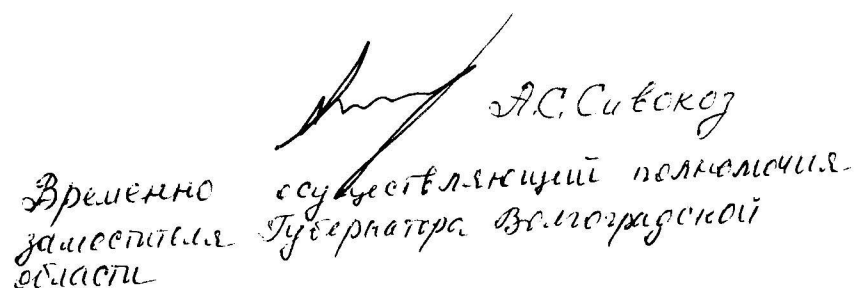 А.С. Сивокоз
Временно осуществляющий полномочия
заместителя Губернатора Волгоградской
области